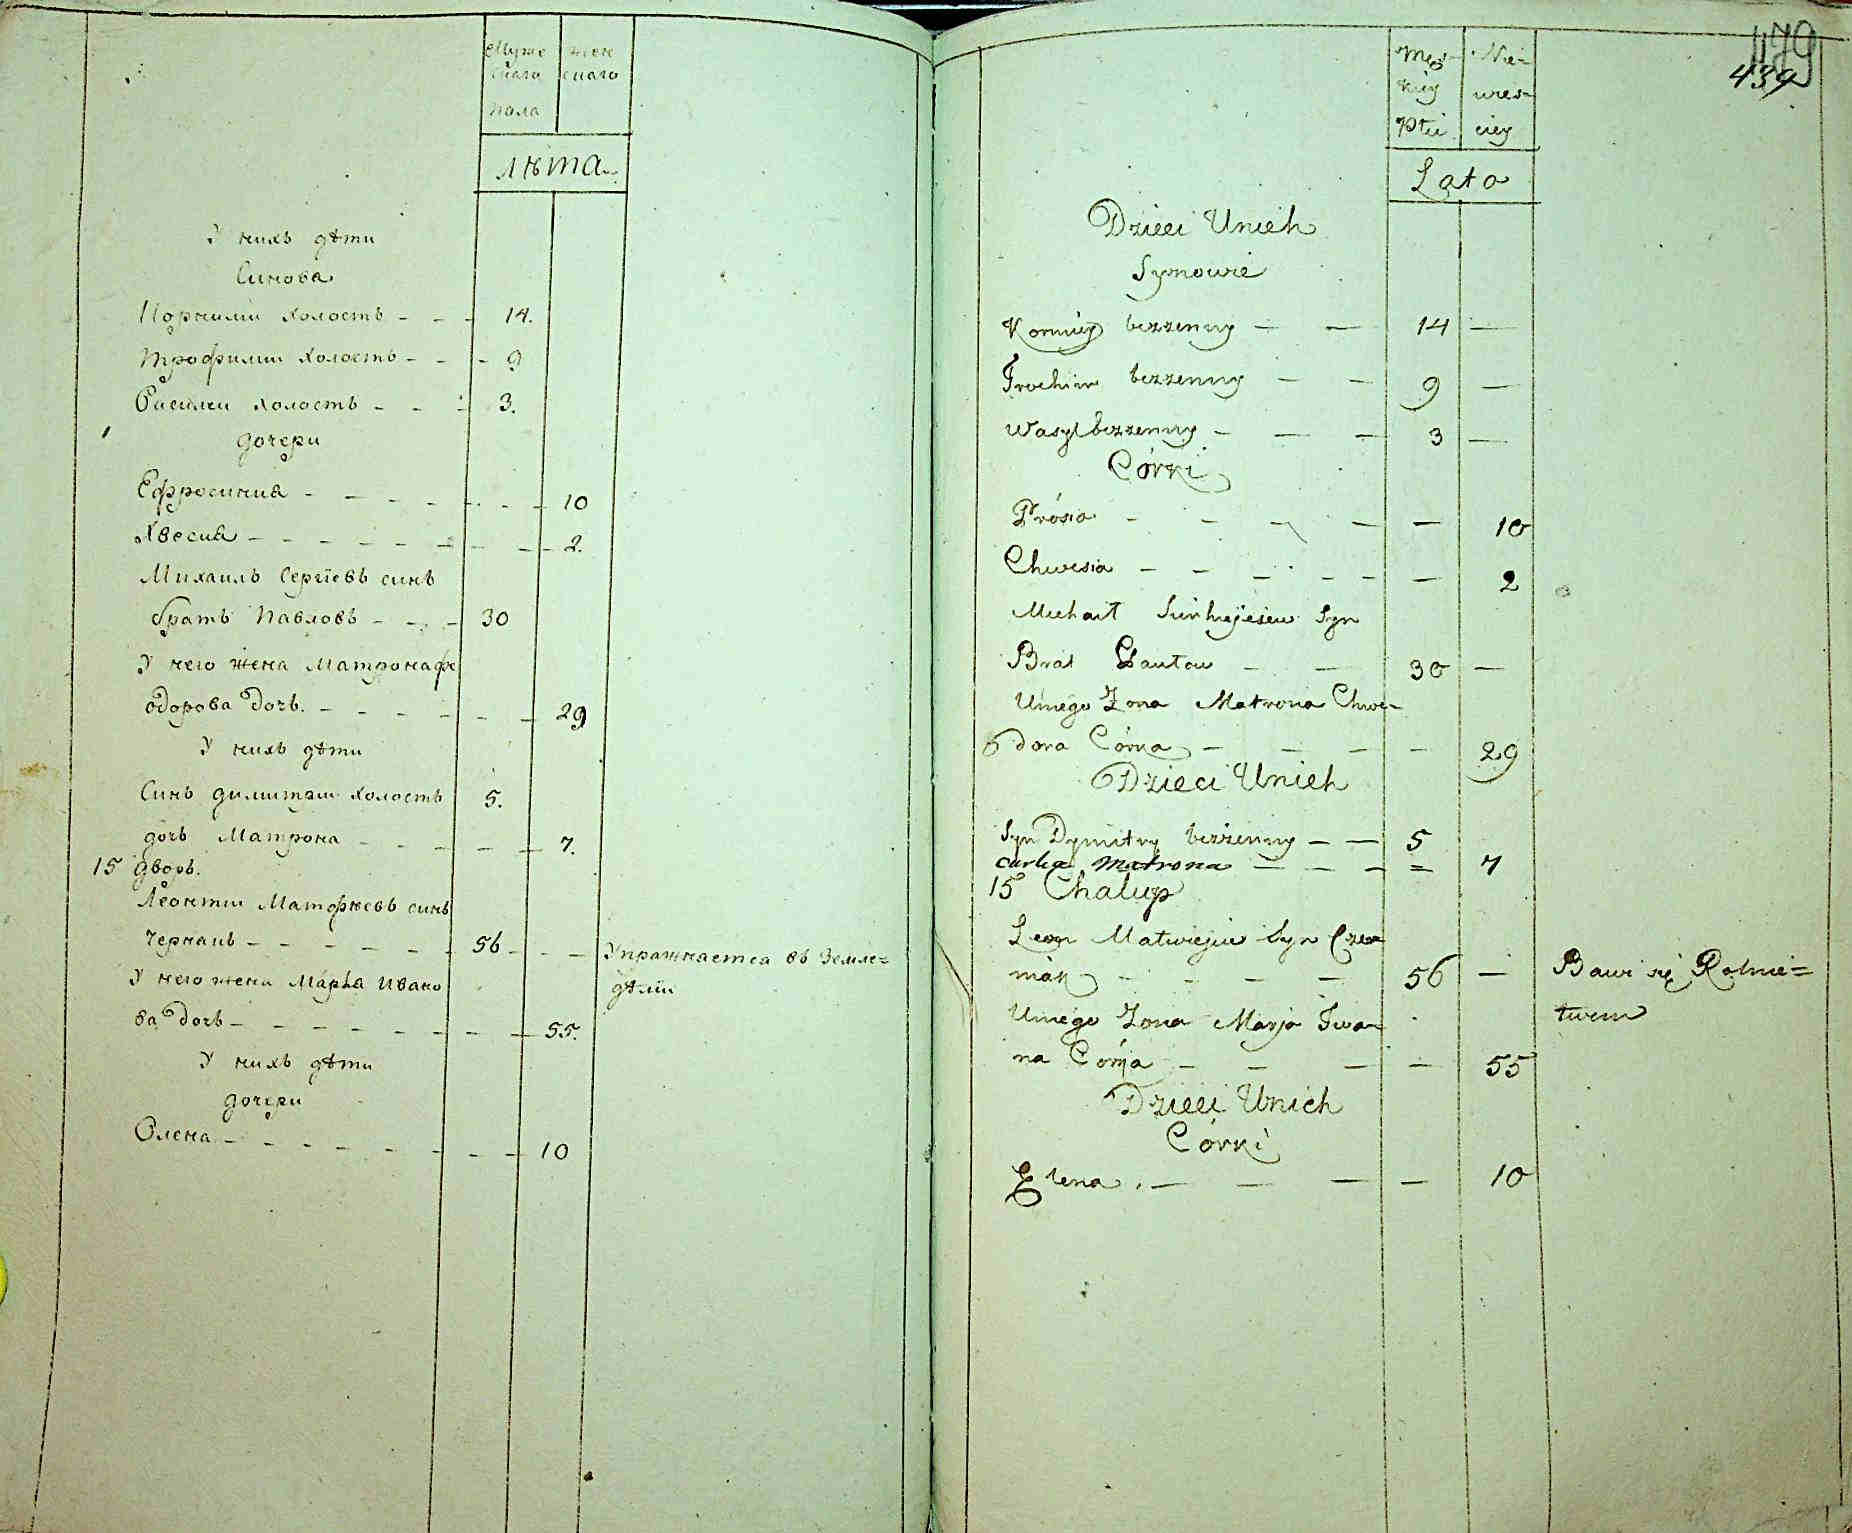 Муже жен
скаго скаго
пола
лѣта
У нихъ дѣти
Синова
Корнилии холостъ - - - 14.
Трофимии холостъ - - - 9
Василии холостъ - - - 3.
дочери
Ефросиния - - - - - - - 10
Хвесия - - - - - - - - 2.
Михаилъ Сергіевъ синъ
братъ Павловъ - - - 30
У него жена Матрона фе
одорова дочь. - - - - - - 29
У нихъ дѣти
Синъ димитрии холостъ 5.
дочь Матрона - - - - - 7.
15 дворъ.
Леонтии Матфѣевъ синъ
Чермакъ - - - - - - 56 - - - Упражнается въ Земле=
дѣлїи
У него жена Марья Ивано
ва дочь - - - - - - - - 55.
У нихъ дѣти
дочери
Олена - - - - - - - - 10
179
439
Męz- Nie-
kiey wies-
Płci ciey
Lata
Dzieci Unich
Synowie
Korniey bezzenny — — 14 —
Trochim bezzenny — — 9 —
Wasyl bezzenny — — — 3 —
Córki
Prósia - - - - — 10
Chwesia - - - - - - — 2
Michait Syn
Brat Pawłow — — 30 —
Uniego Zona Matrona Chwe-
dora Córka — — — - 29
Dzieci Unich
Syn Dymitry bezżenny — — 5
curka Matrona — — — - = 7
15 Chalup
Leon Matwiejew Syn Czer
mak - - - — — 56 — Bawi się Rolnic=
twem
Uniego Zona Marja Iwa-
na Córka - - — — 55
Dzieci Unich
Córki
Elena . — — — — 10